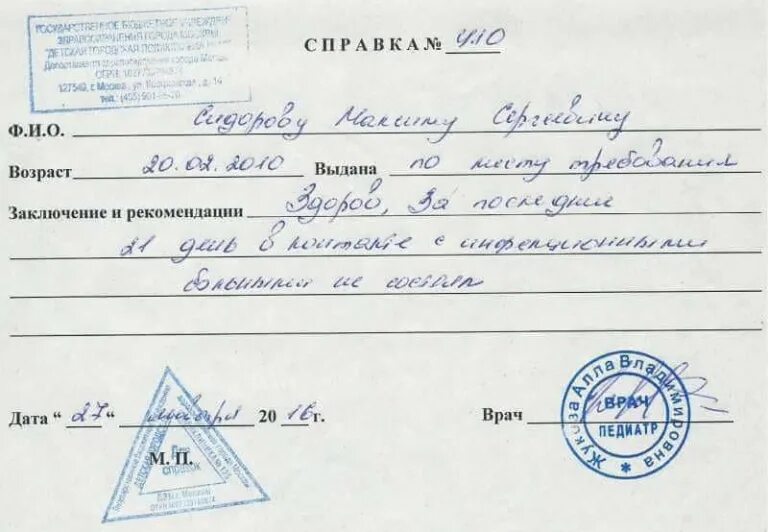 ГОСУДАРСТВЕННОЕ БЮДЖЕТНОЕ УЧРЕЖДЕН
ЗДРАВООХРАНЕНИЯ ГОРОДА МОСКВЫ
"ДЕТСКАЯ ГОРОДСКАЯ ПОЛИКЛИНИКА
Департамента здравоохранения города Москвы
127549, г. Москва, ул.
СПРАВКА № 410
Ф.И.О. Сидорову Максиму Сергеевичу
Возраст 20.02.2010 Выдана по месту требования
Заключение и рекомендации Здоров, За последний
21 день в контакте с инфекционными
больными не состоял
Дата "27" 2016 г. Врач
М. П.
Для справок
г. Москва
Жукова Алла Владимировна
ВРАЧ
ПЕДИАТР